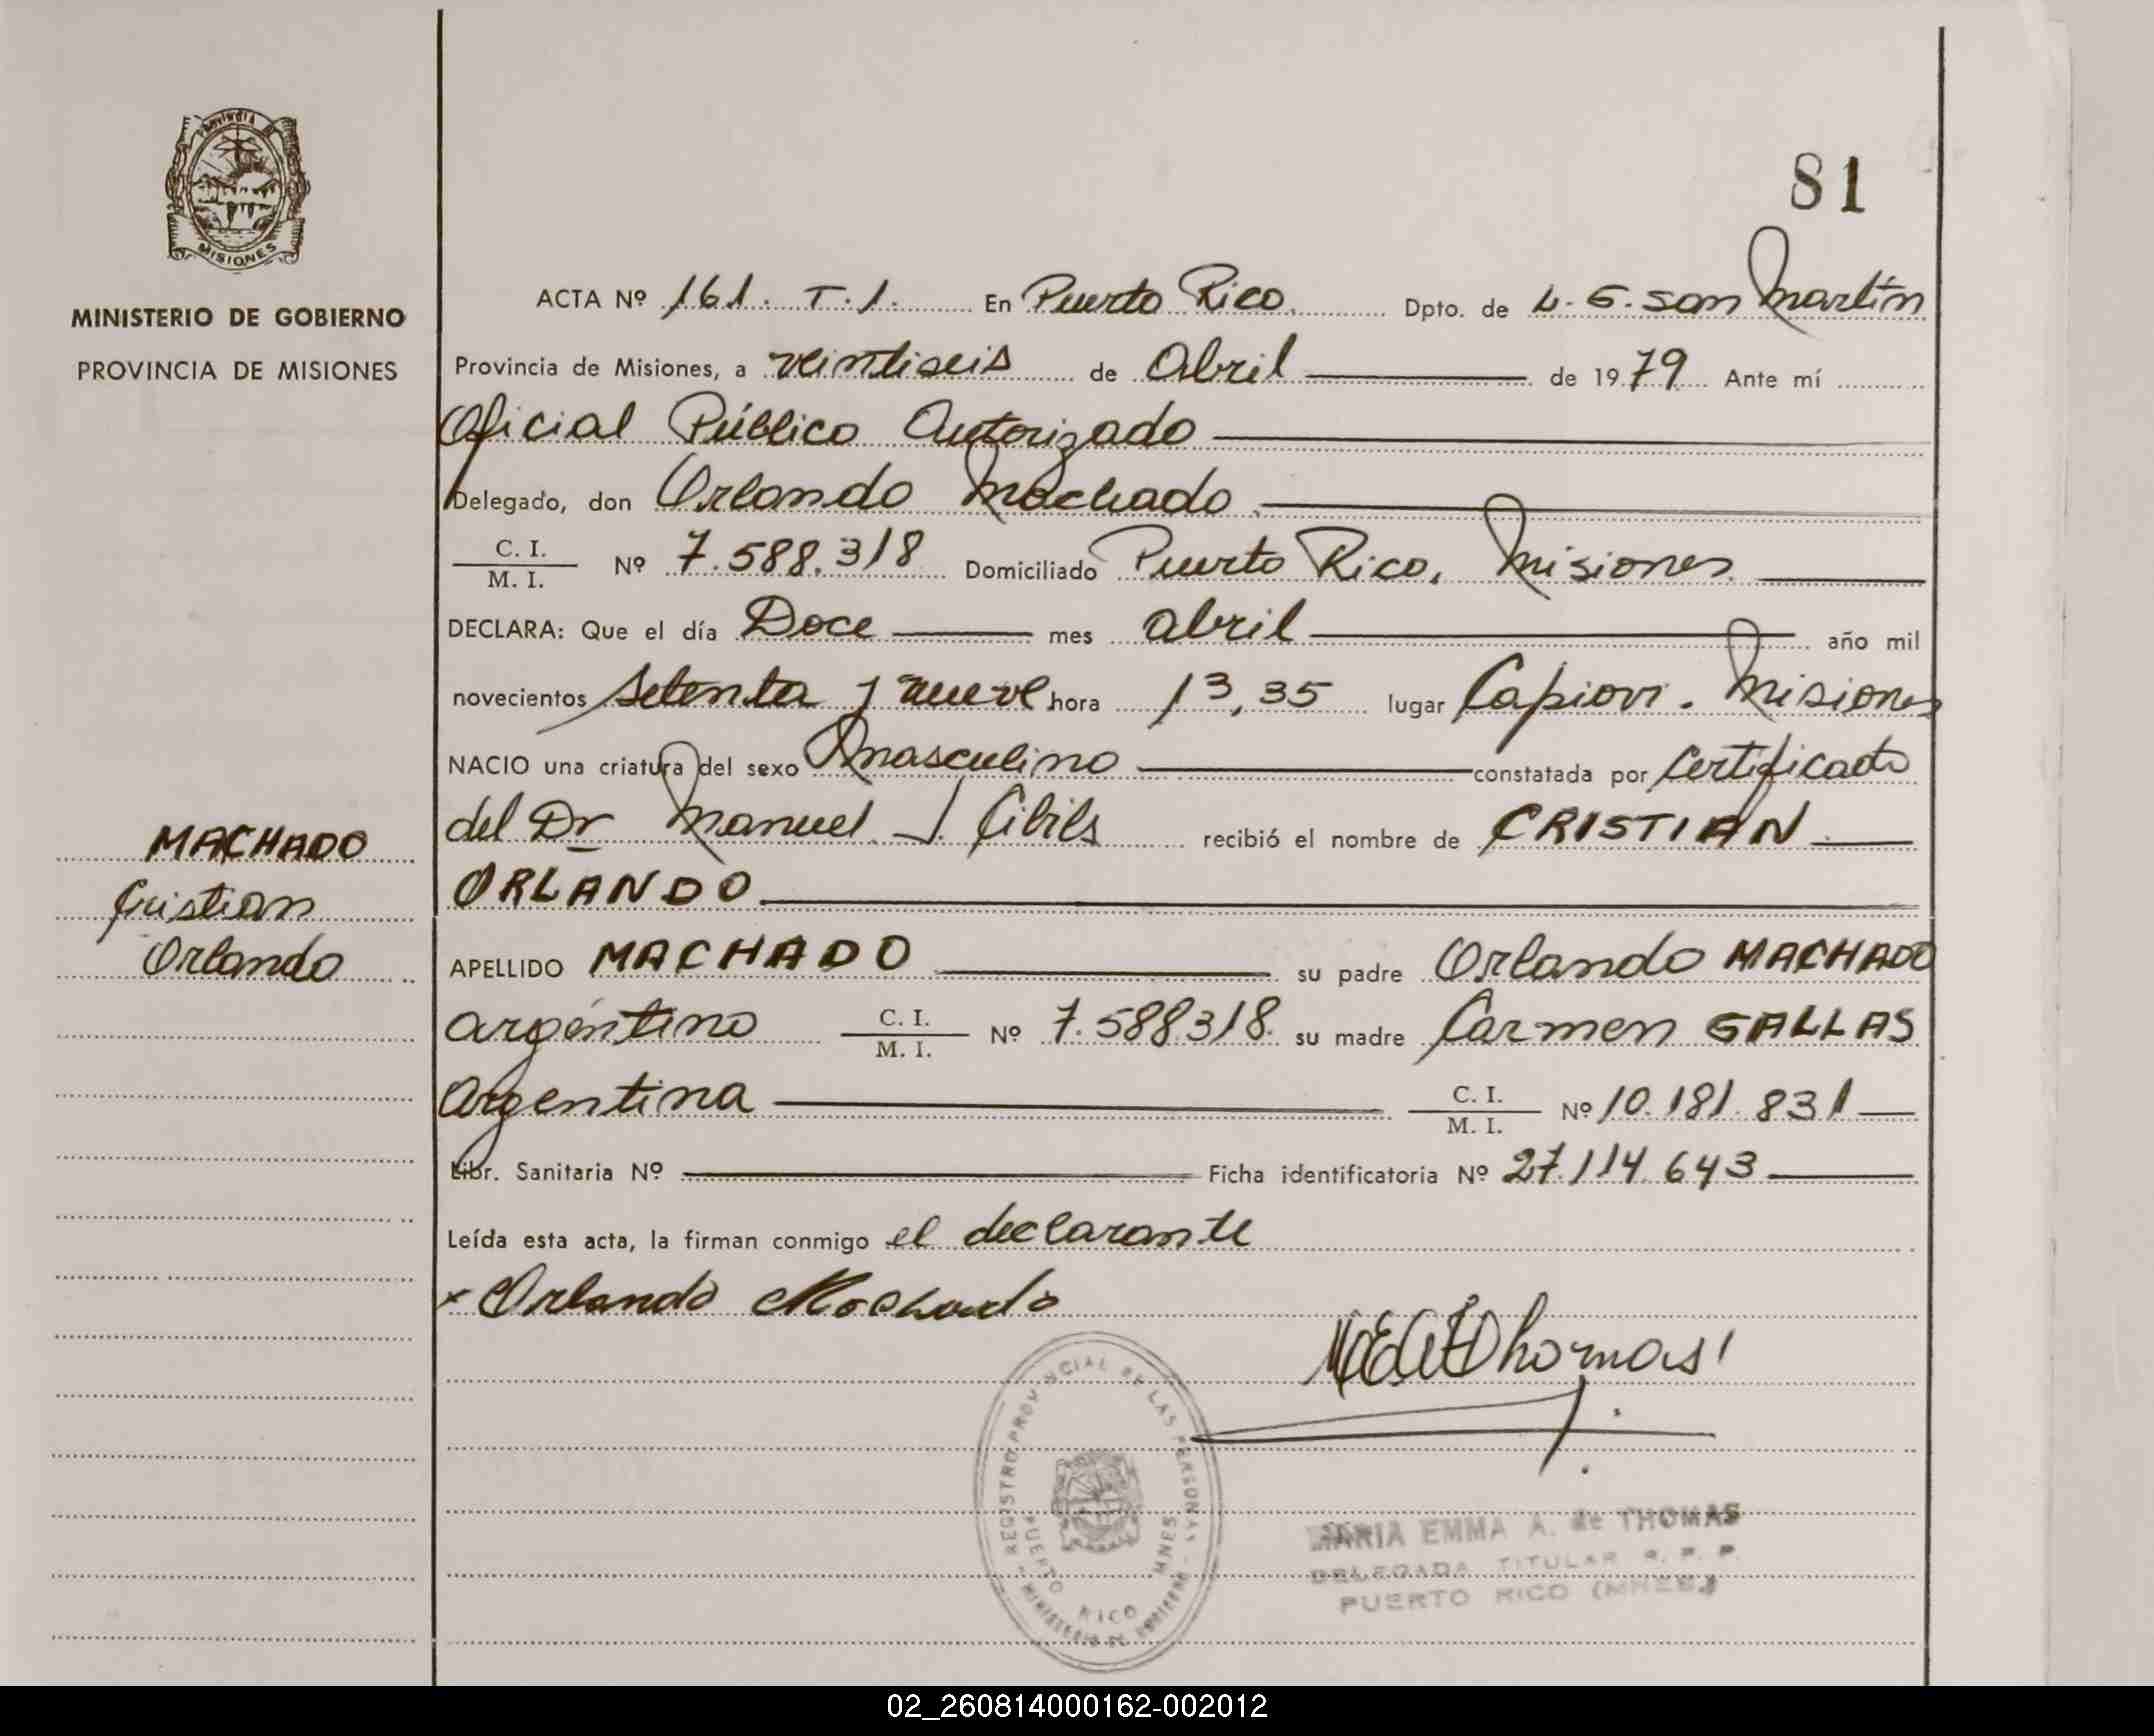 81
PROVINCIA DE
MISIONES
MINISTERIO DE GOBIERNO
PROVINCIA DE MISIONES
ACTA Nº 161. T.1. En Puerto Rico. Dpto. de L. G. San Martín
Provincia de Misiones, a veintiseis de Abril de 1979 Ante mí
Oficial Público Autorizado
Delegado, don Orlando Machado.
C. I. / M. I. Nº 7.588.318 Domiciliado Puerto Rico, Misiones
DECLARA: Que el día Doce mes abril año mil
novecientos setenta y nueve hora 13,35 lugar Capiovi. Misiones
NACIO una criatura del sexo masculino constatada por Certificado
del Dr Manuel J. Cibils recibió el nombre de CRISTIAN
ORLANDO
MACHADO
Cristian
Orlando
APELLIDO MACHADO su padre Orlando MACHADO
argentino C. I. / M. I. Nº 7.588.318. su madre Carmen GALLAS
Argentina C. I. / M. I. Nº 10.181.831
Libr. Sanitaria Nº Ficha identificatoria Nº 27.114.643
Leída esta acta, la firman conmigo el declarante
x Orlando Machado
Thomas
REGISTRO PROVINCIAL DE LAS PERSONAS
MINISTERIO DE GOBIERNO
PUERTO RICO MNES
MARIA EMMA A. de THOMAS
DELEGADA TITULAR R. P. P.
PUERTO RICO (MNES.)
02_260814000162-002012